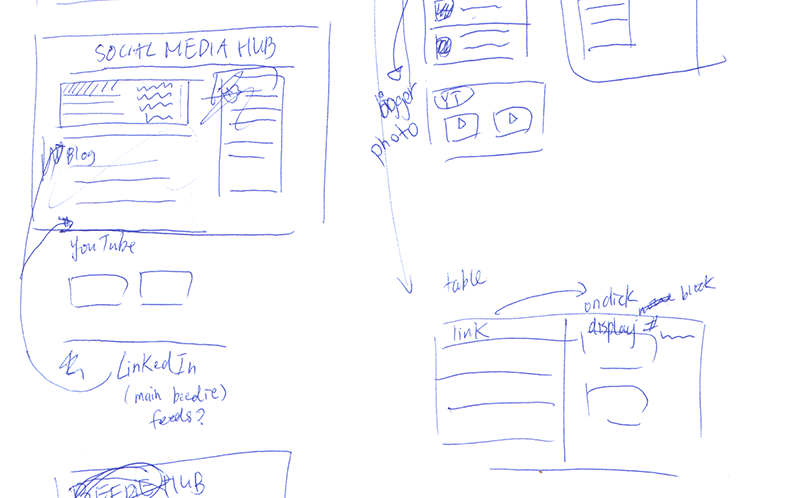 SOCIAL MEDIA HUB
Blog
YouTube
LinkedIn
(main beedie)
feeds?
HUB
bigger
photo
YT
table
onclick
block
link
display #